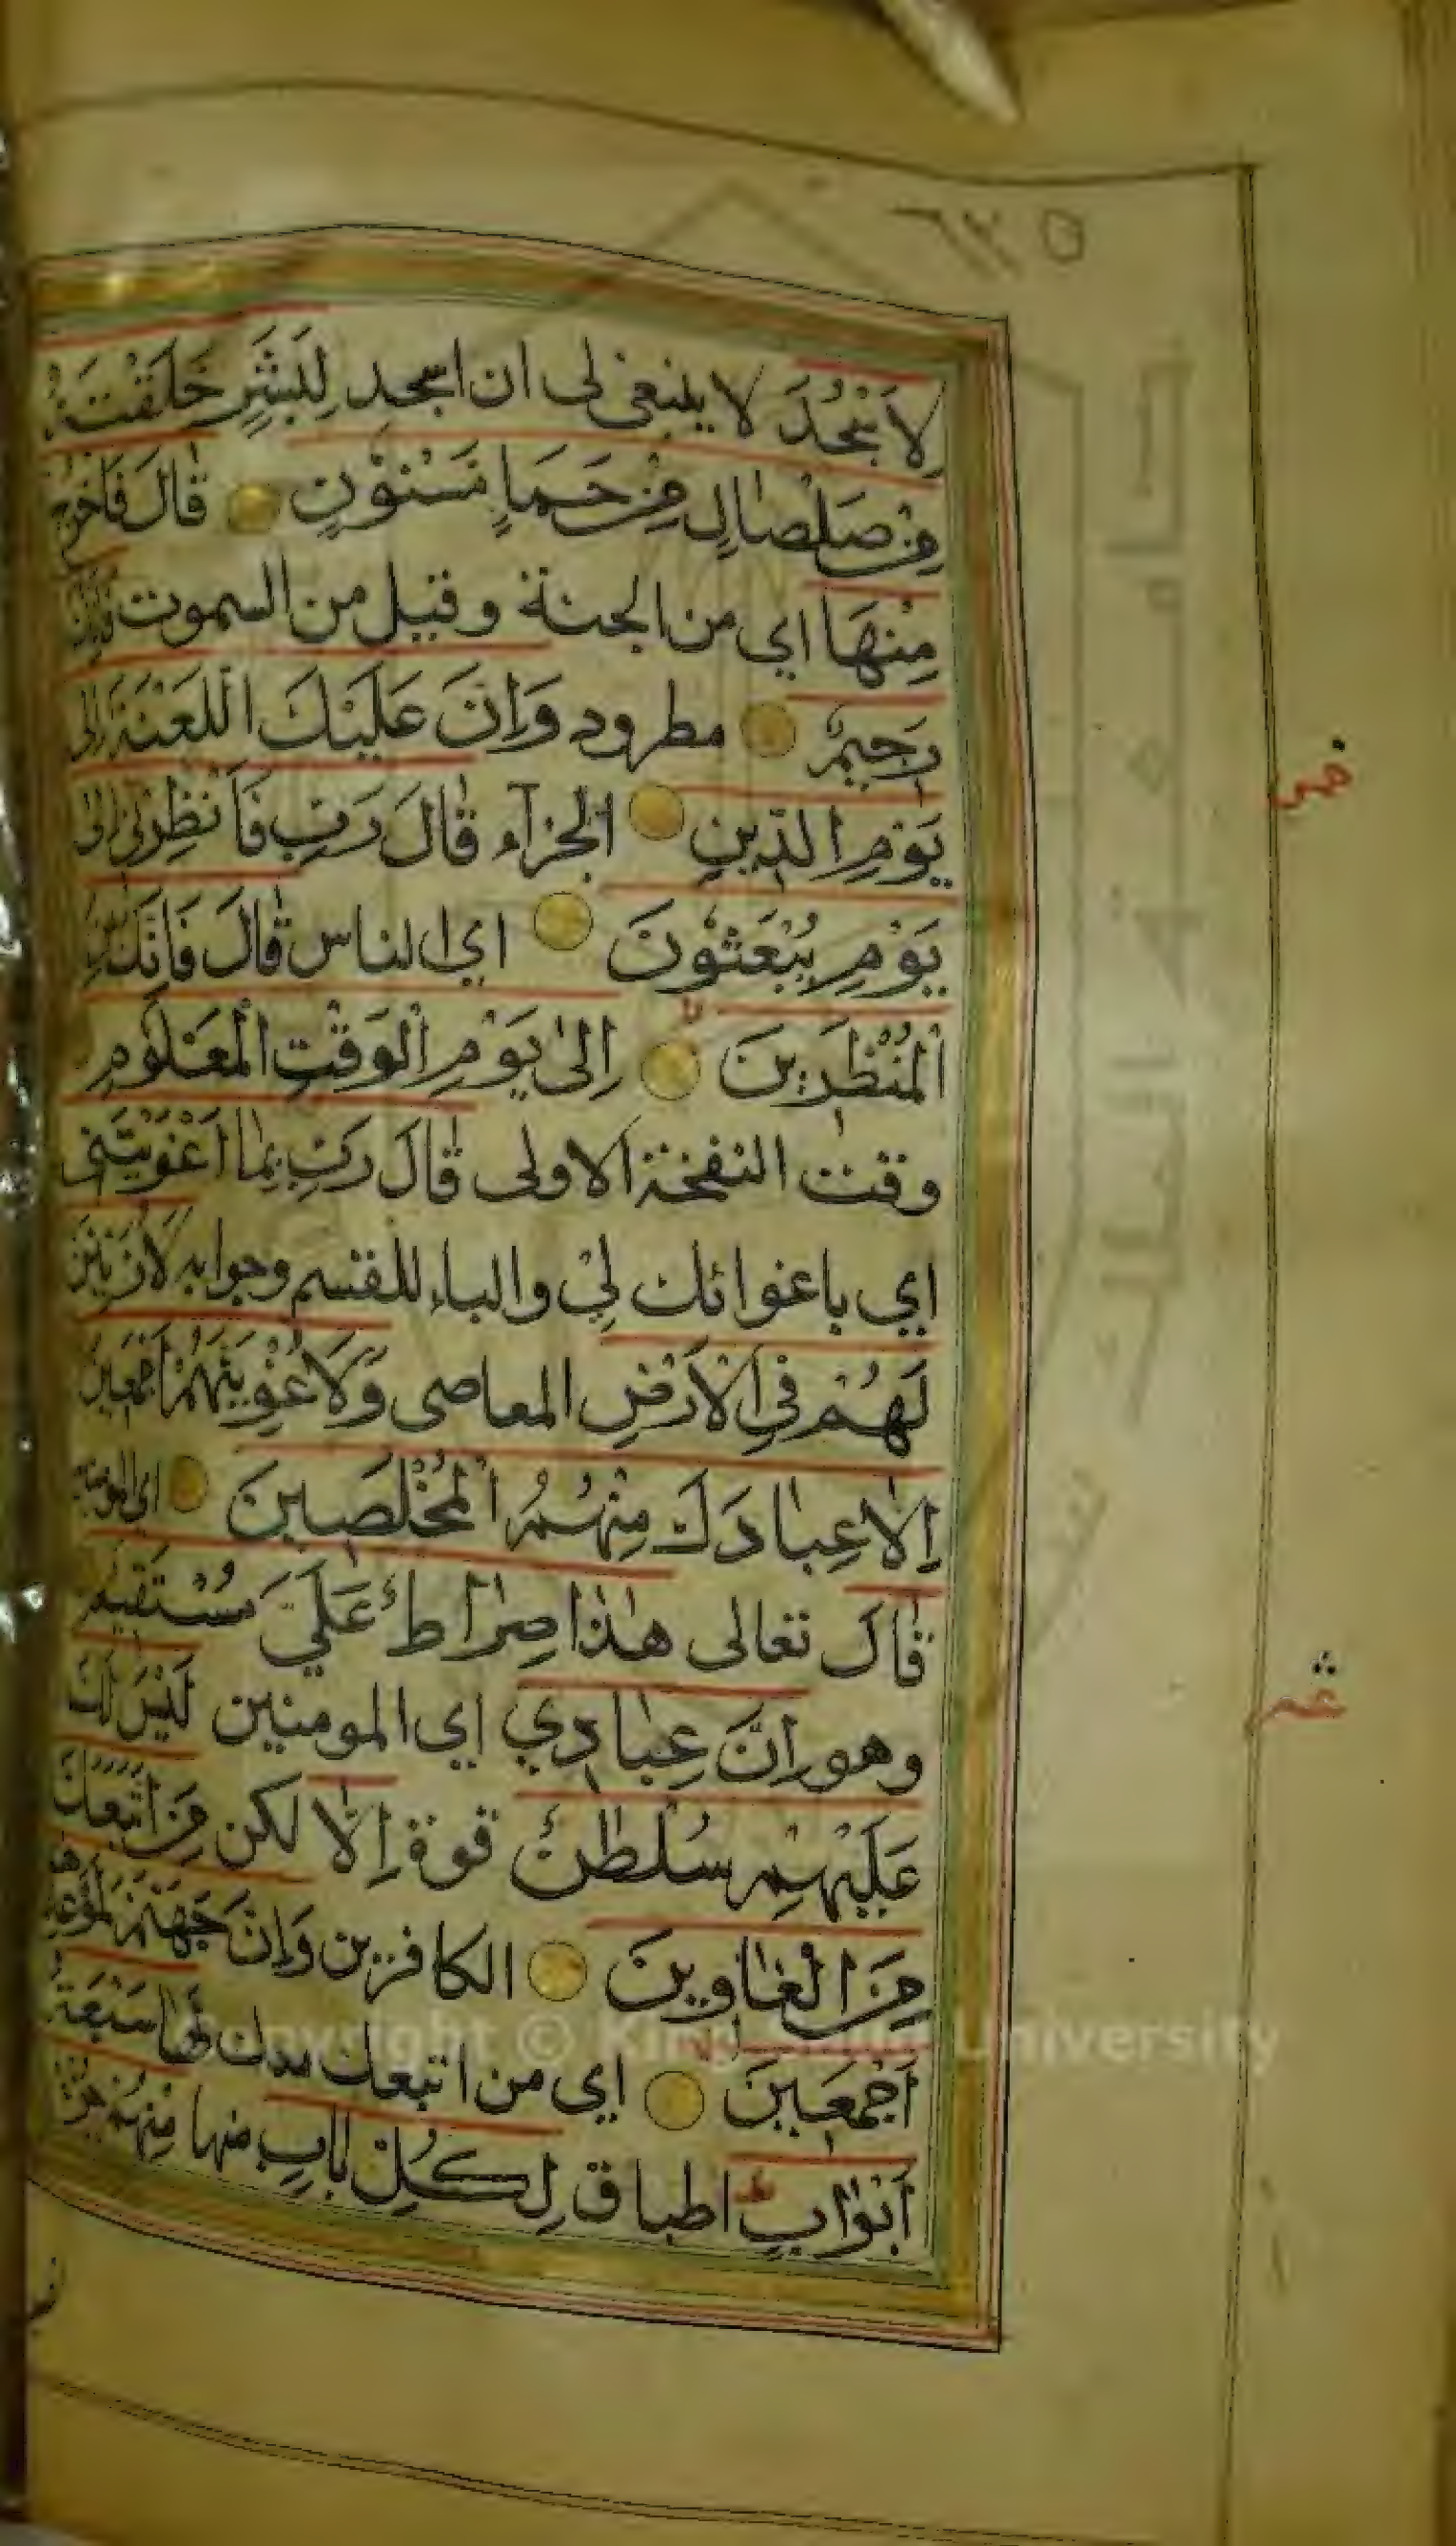 ٦٣٥
لِاَسْجُدَ لا ينبغى لى ان اسجد لِبَشَرٍ خَلَقْتَهُ
مِنْ صَلْصَالٍ مِنْ حَمَاٍ مَسْنُوْنٍ قَالَ فَاخْرُجْ
مِنْهَا اي من الجنة وقيل من السموت فَاِنَّكَ
رَجِيْمٌ مطرود وَاِنَّ عَلَيْكَ اللَّعْنَةَ اِلٰى
يَوْمِ الدِّيْنِ الجزآء قَالَ رَبِّ فَاَنْظِرْنِيْ اِلٰى
يَوْمِ يُبْعَثُوْنَ اي الناس قَالَ فَاِنَّكَ مِنَ
الْمُنْظَرِيْنَ اِلٰى يَوْمِ الْوَقْتِ الْمَعْلُوْمِ
وقت النفخة الاولى قَالَ رَبِّ بِمَا اَغْوَيْتَنِى
اي باغوائك لِيْ والباء للقسم وجوابه لَاُزَيِّنَنَّ
لَهُمْ فِي الْاَرْضِ المعاصى وَلَاُغْوِيَنَّهُمْ اَجْمَعِيْنَ
اِلَّا عِبَادَكَ مِنْهُمُ الْمُخْلَصِيْنَ اي المومنين
قَالَ تعالى هٰذَا صِرَاطٌ عَلَيَّ مُسْتَقِيْمٌ
وهو اِنَّ عِبَادِيْ اي المومنين لَيْسَ لَكَ
عَلَيْهِمْ سُلْطٰنٌ قوة اِلَّا لكن مَنِ اتَّبَعَكَ
مِنَ الْغَاوِيْنَ الكافرين وَاِنَّ جَهَنَّمَ لَمَوْعِدُهُمْ
اَجْمَعِيْنَ اي من اتبعك معك لَهَا سَبْعَةُ
اَبْوَابٍ اطباق لِكُلِّ بَابٍ منها مِنْهُمْ جُزْءٌ
Copyright © King Saud University